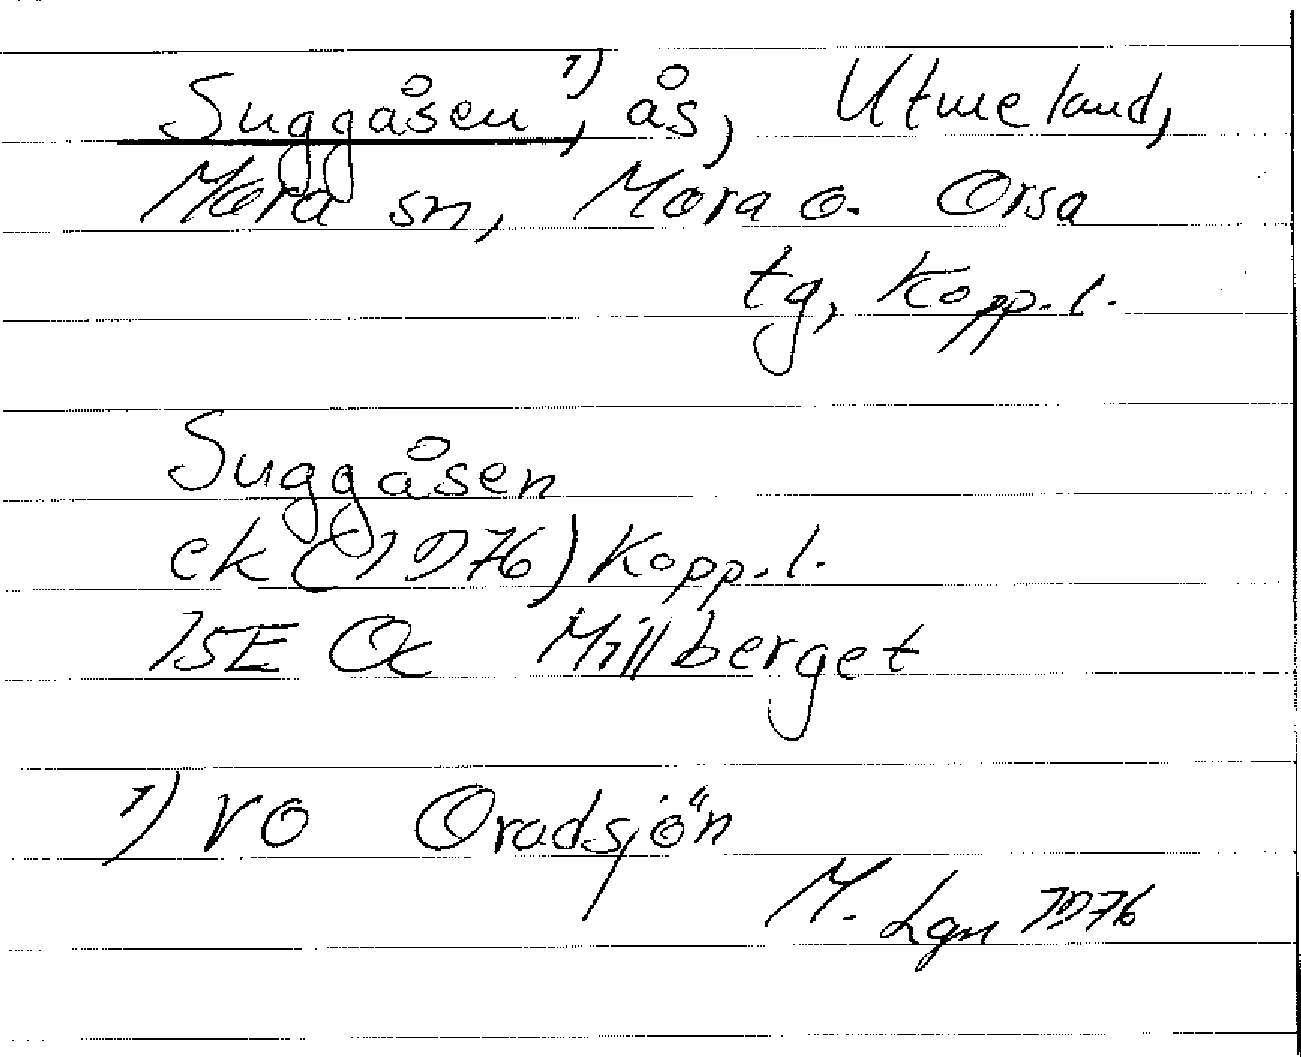 Suggåsen¹⁾, ås, Utmeland,
Mora sn, Mora o. Orsa
tg, Kopp. l.
Suggåsen
ek (1976) Kopp. l.
15E Oc Millberget
¹⁾ VO Oradsjön
M. Lgn 1976